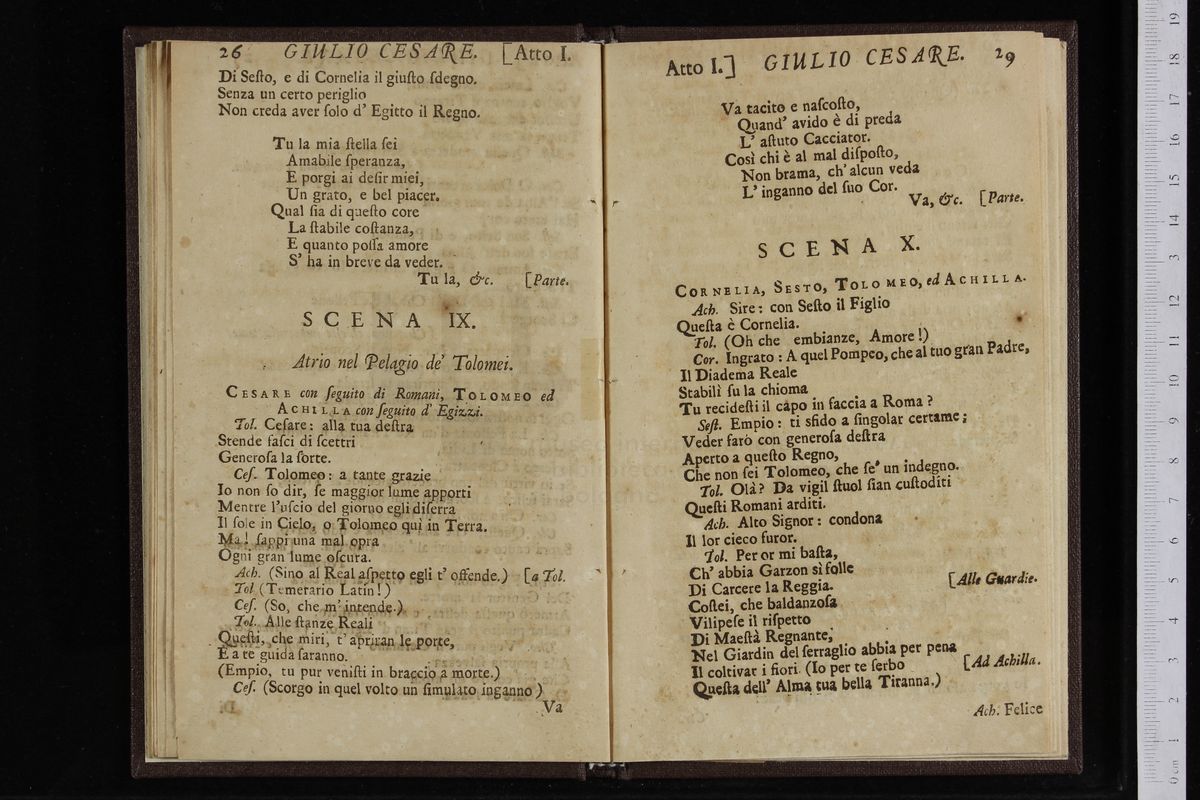 26 GIULIO CESARE. [Atto I.
Di Seſto, e di Cornelia il giuſto ſdegno.
Senza un certo periglio
Non creda aver ſolo d' Egitto il Regno.
Tu la mia ſtella ſei
Amabile ſperanza,
E porgi ai deſir miei,
Un grato, e bel piacer.
Qual ſia di queſto core
La ſtabile coſtanza,
E quanto poſſa amore
S' ha in breve da veder.
Tu la, &c. [Parte.
SCENA IX.
Atrio nel Pelagio de' Tolomei.
CESARE con ſeguito di Romani, TOLOMEO ed
ACHILLA con ſeguito d' Egizzi.
Tol. Ceſare: alla tua deſtra
Stende faſci di ſcettri
Generoſa la ſorte.
Ceſ. Tolomeo: a tante grazie
Io non ſo dir, ſe maggior lume apporti
Mentre l'uſcio del giorno egli diſerra
Il ſole in Cielo, o Tolomeo qui in Terra.
Ma! ſappi una mal opra
Ogni gran lume oſcura.
Ach. (Sino al Real aſpetto egli t' offende.) [a Tol.
Tol (Temerario Latin!)
Ceſ. (So, che m' intende.)
Tol. Alle ſtanze Reali
Queſti, che miri, t' apriran le porte,
E a te guida ſaranno.
(Empio, tu pur veniſti in braccio a morte.)
Ceſ. (Scorgo in quel volto un ſimulato inganno)
Va
Atto I.] GIULIO CESARE. 29
Va tacito e naſcoſto,
Quand' avido è di preda
L' aſtuto Cacciator.
Così chi è al mal diſpoſto,
Non brama, ch' alcun veda
L' inganno del ſuo Cor.
Va, &c. [Parte.
SCENA X.
CORNELIA, SESTO, TOLOMEO, ed ACHILLA.
Ach. Sire: con Seſto il Figlio
Queſta è Cornelia.
Tol. (Oh che embianze, Amore!)
Cor. Ingrato: A quel Pompeo, che al tuo gran Padre,
Il Diadema Reale
Stabilì ſu la chioma
Tu recideſti il capo in faccia a Roma?
Seſt. Empio: ti sfido a ſingolar certame;
Veder farò con generoſa deſtra
Aperto a queſto Regno,
Che non ſei Tolomeo, che ſe' un indegno.
Tol. Olà? Da vigil ſtuol ſian cuſtoditi
Queſti Romani arditi.
Ach. Alto Signor: condona
Il lor cieco furor.
Tol. Per or mi baſta,
Ch' abbia Garzon sì folle
Di Carcere la Reggia. [Alle Guardie.
Coſtei, che baldanzoſa
Vilipeſe il riſpetto
Di Maeſtà Regnante,
Nel Giardin del ſerraglio abbia per pena
Il coltivar i fiori. (Io per te ſerbo [Ad Achilla.
Queſta dell' Alma tua bella Tiranna.)
Ach. Felice